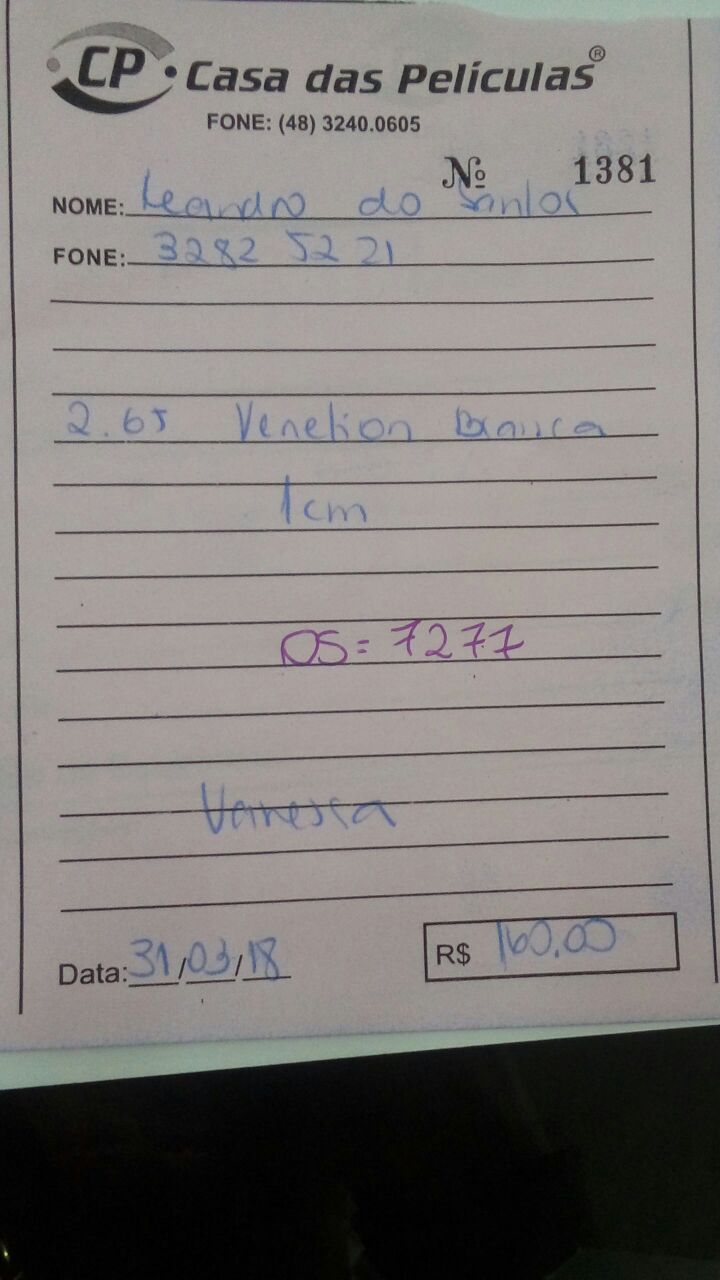 CP • Casa das Películas®
FONE: (48) 3240.0605
Nº 1381
NOME: Leandro do Santos
FONE: 3282 52 21
2.65 Venetion Branca
1cm
OS = 7277
Vanessa
Data: 31/03/18 R$ 160,00